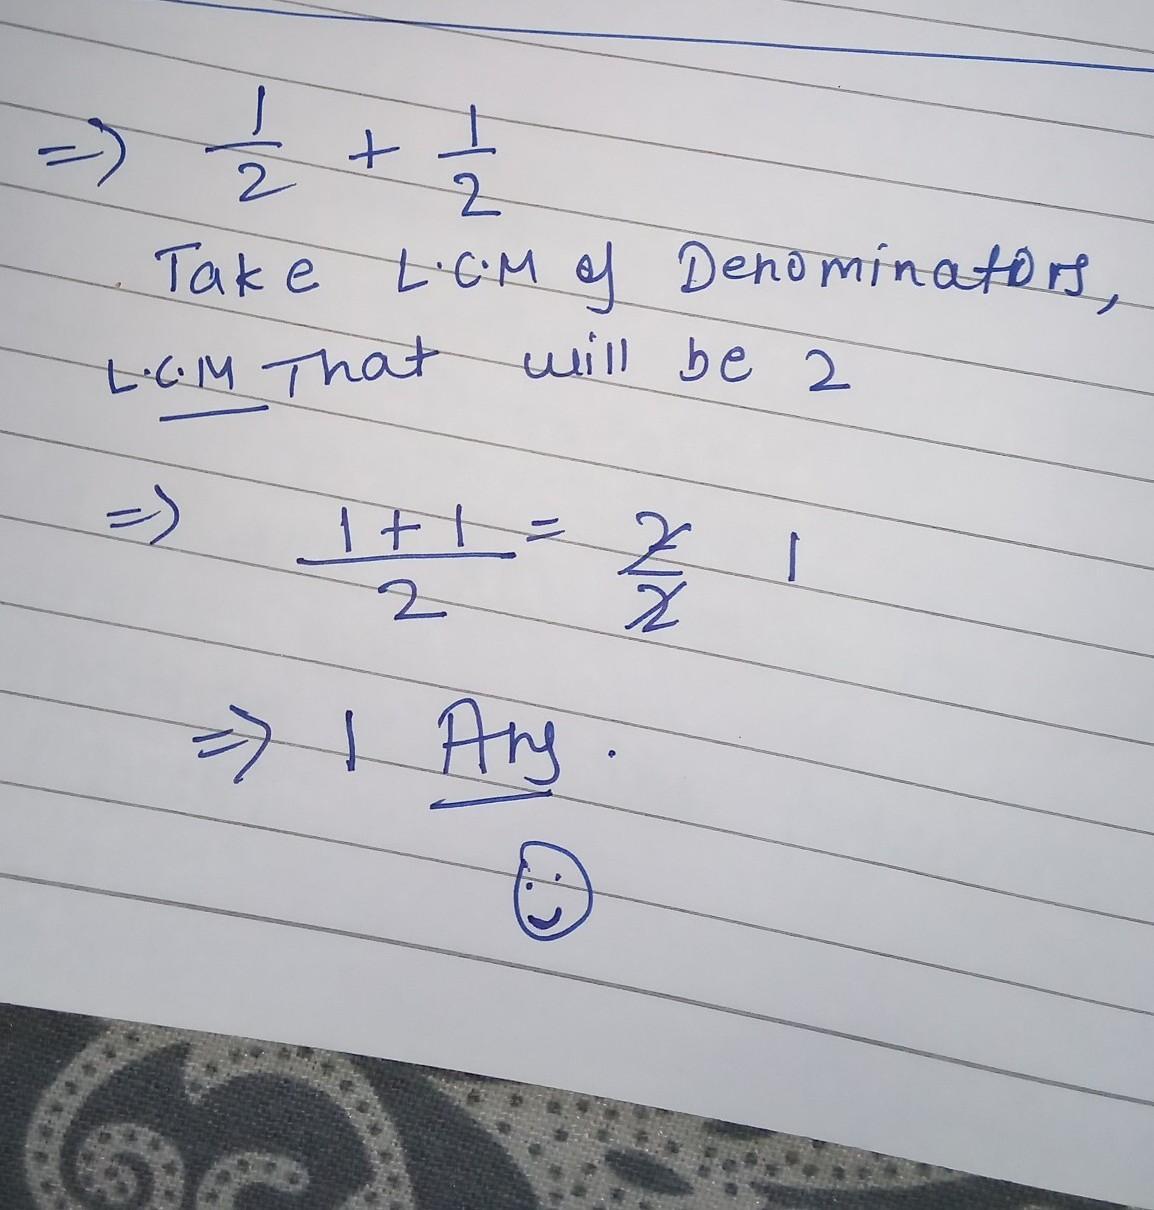 => 1/2 + 1/2
Take L.C.M of Denominators,
L.C.M That will be 2
=> (1 + 1)/2 = 2/2 1
=> 1 Ans.